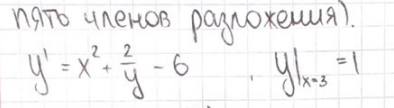 пять членов разложения).
y' = x² + 2/y - 6 , y|ₓ₌₃ = 1